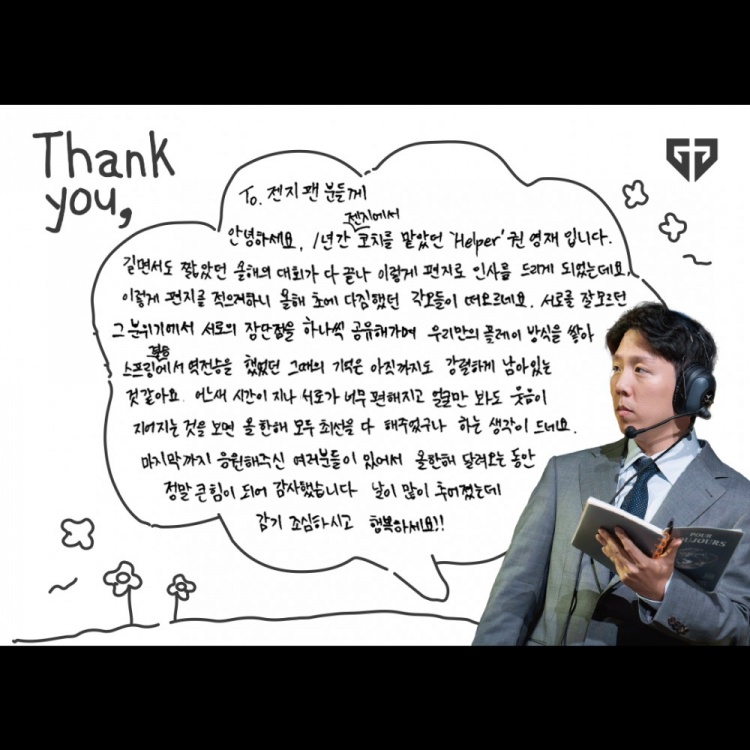 Thank
you,
To. 젠지 팬 분들께
젠지에서
안녕하세요, 1년간 코치를 맡았던 'Helper' 권영재 입니다.
길면서도 짧았던 올해의 대회가 다 끝나 이렇게 편지로 인사를 드리게 되었는데요,
이렇게 편지를 적으려하니 올해 초에 다짐했던 각오들이 떠오르네요. 서로를 잘모르던
그 분위기에서 서로의 장단점을 하나씩 공유해가며 우리만의 플레이 방식을 쌓아
결승
스프링에서 역전승을 했었던 그때의 기억은 아직까지도 강렬하게 남아있는
것같아요. 어느새 시간이 지나 서로가 너무 편해지고 얼굴만 봐도 웃음이
지어지는 것을 보면 올 한해 모두 최선을 다 해주었구나 하는 생각이 드네요.
마지막까지 응원해주신 여러분들이 있어서 올한해 달려오는 동안
정말 큰 힘이 되어 감사했습니다 날이 많이 추어졌는데
감기 조심하시고 행복하세요!!
POUR
TOUJOURS